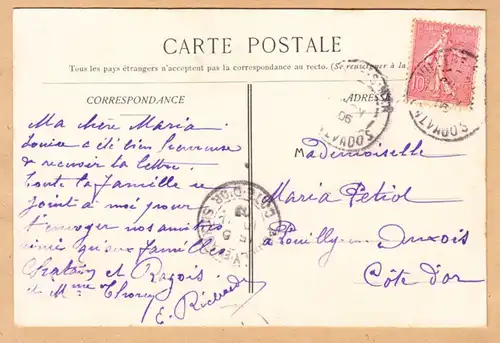 CARTE POSTALE
Tous les pays étrangers n'acceptent pas la correspondance au recto. (Se renseigner à la
CORRESPONDANCE
ADRES
Ma chère Maria
Louise a été bien heureuse
de recevoir ta lettre.
Toute la famille se
joint à moi pour
t'envoyer nos amitiés
ainsi qu'aux familles
Chatain et Ragois
et Mme
E. Richard
Mademoiselle
Maria Petiol
à Pouilly en Auxois
Côte d'or